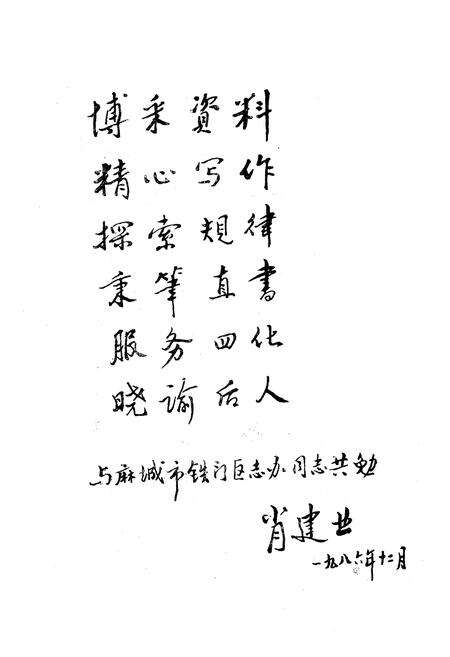 博采資料
精心写作
探索規律
秉笔直書
服务四化
晓谕后人
与麻城市铁门区志办同志共勉
肖建业
一九八六年十二月